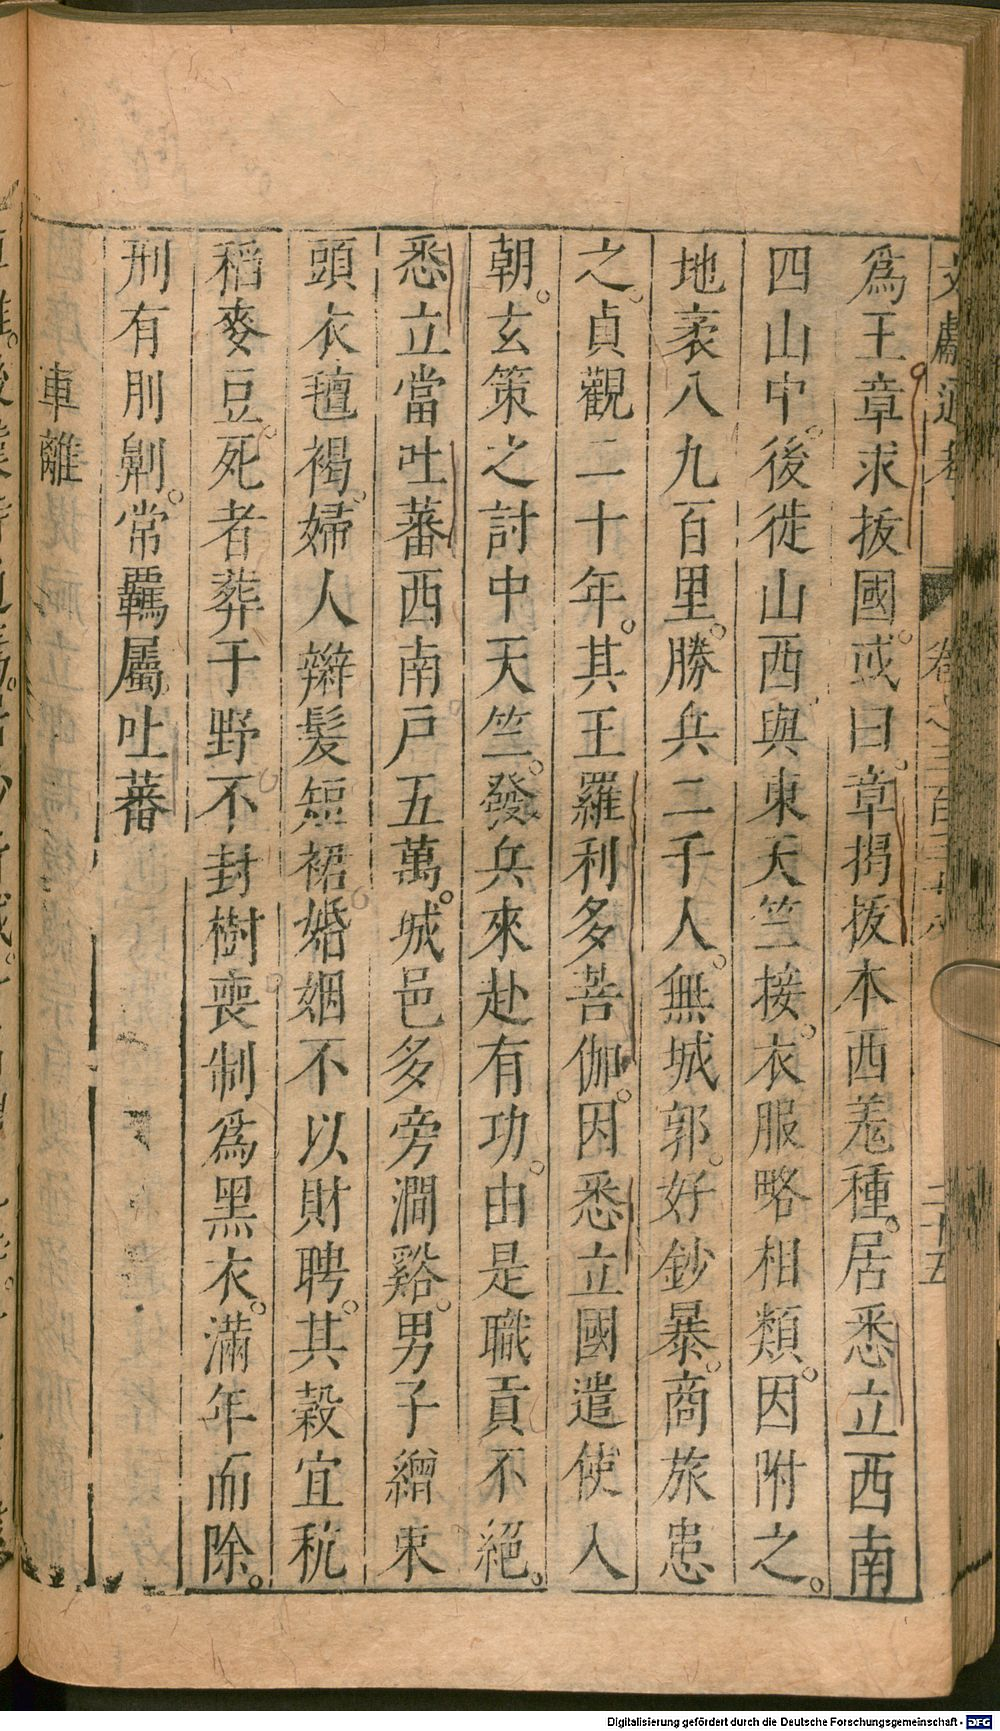 文獻通考 卷之三百三十八 二十五
爲王章求拔國。或曰。章揭拔本西羗種。居悉立西南
四山中。後徙山西與東天竺接。衣服略相類。因附之。
地袤八九百里。勝兵二千人。無城郭。好鈔暴。商旅患
之。貞觀二十年。其王羅利多菩伽。因悉立國遣使入
朝。玄策之討中天竺。發兵來赴有功。由是職貢不絕。
悉立當吐蕃西南戶五萬。城邑多旁澗谿。男子繒束
頭衣氊褐。婦人辮髮短裙婚姻不以財聘。其穀宜秔
稻麥豆。死者葬于野不封樹喪制爲黑衣。滿年而除。
刑有刖劓。常羈屬吐蕃
車離
Digitalisierung gefördert durch die Deutsche Forschungsgemeinschaft - DFG